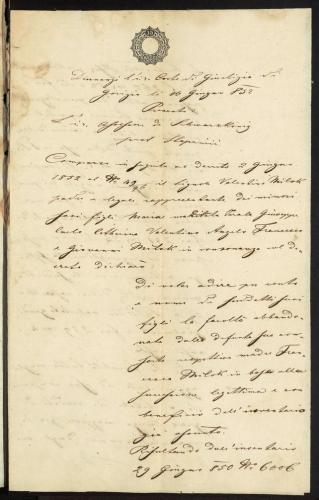 Dinnanzi l'i.r. Corte di Giustizia di
Gorizia li 16 Giugno 852
Presenti
L'i.r.
prot.
Comparve in seguito al decreto 2 Giugno
1852 al N° il Signore Valentino Milok
padre e legale rappresentante dei minori
suoi figli Maria Natale Giuseppe
Carlo Catterina Valentino Angelo Francesco
e Giovanni Milok in al de-
creto dichiarò
Di voler adire per conto
e nome dei suddetti suoi
figli la facoltà abbando-
nata dalla defunta sua con-
sorte rispettiva madre Fran-
cesca Milok in base alla
successione legittima e con
beneficio dell'inventario
già assunto.
Risultando dall'inventario
29 Giugno 850 N° 6006